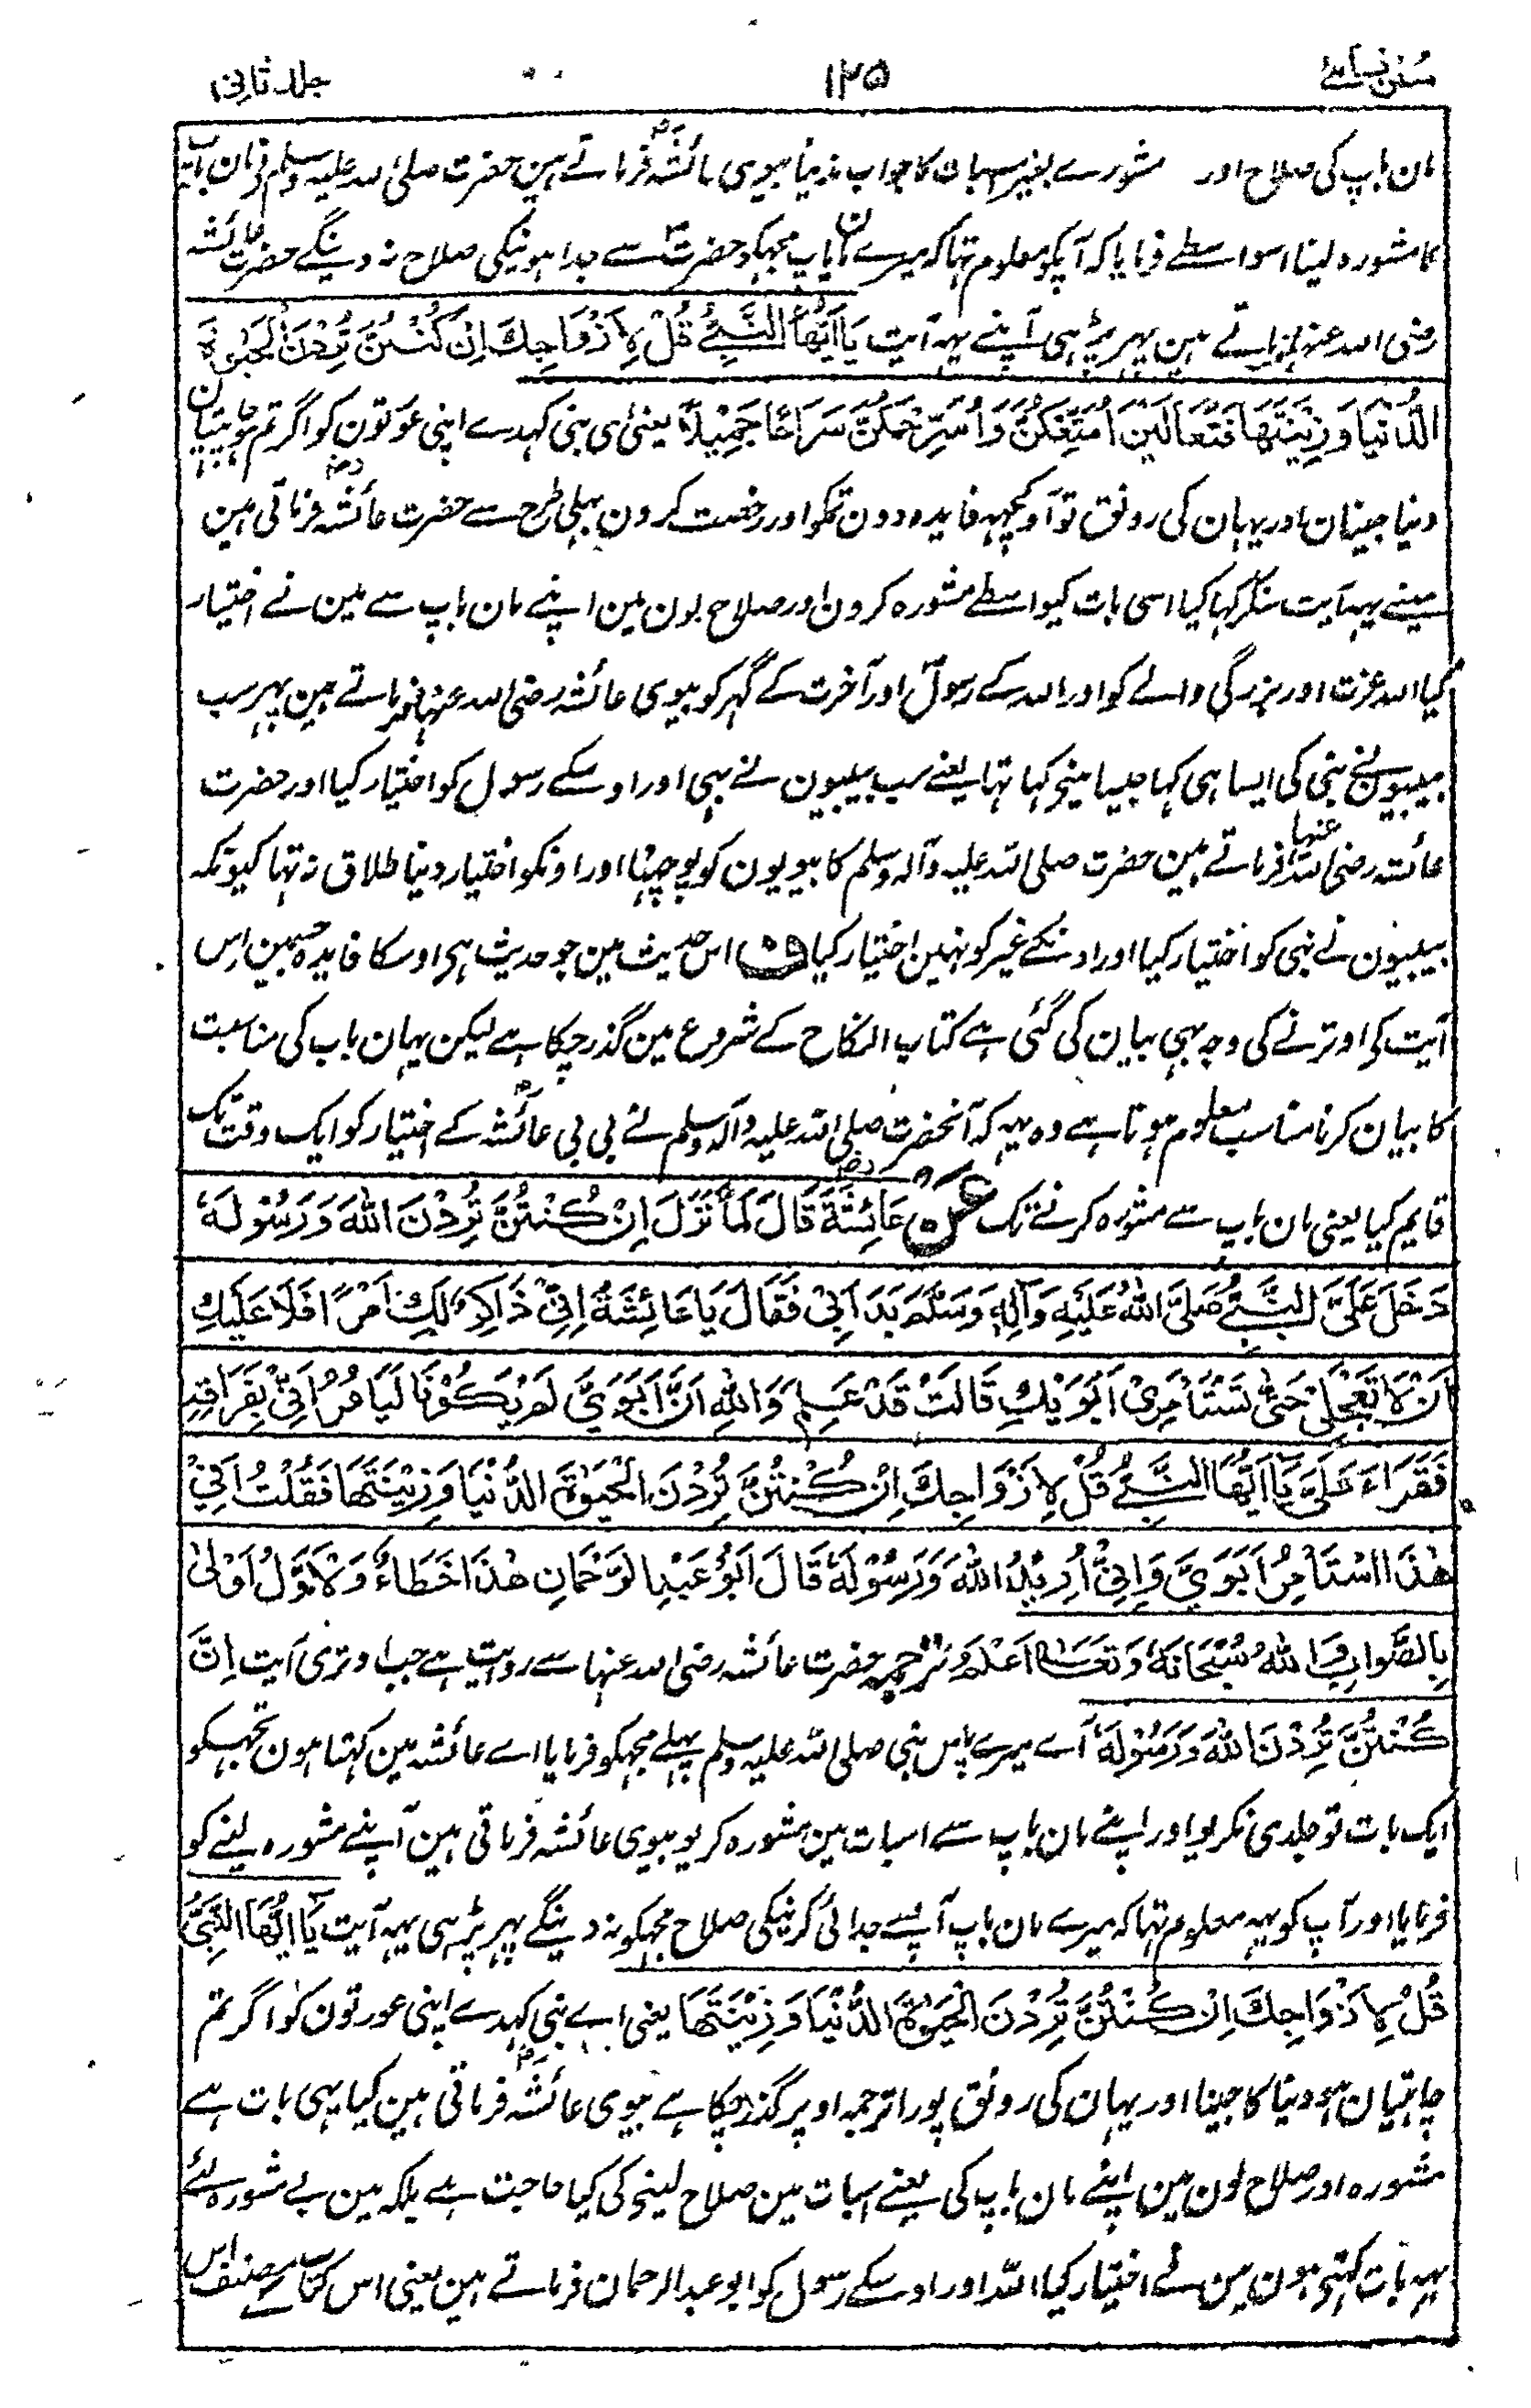 سنن نسائے ۱۲۵ جلد ثانی
مان باپ کی صلاح اور مشورے بغیر اسبات کا جواب ندینا بیوی عائشہؓ فرماتے ہین حضرت صلی اللہ علیہ وسلم مان باپ
کا مشورہ لینا اسواسطے فرمایا کہ آپکو معلوم تہا کہ میرے مان باپ مجہکو حضرتؐ سے جدا ہونیکی صلاح نہ دینگے حضرت عائشہ
رضی اللہ عنہا فرماتے ہین پہر پڑہی آپنے یہہ آیت یَا اَیُّهَا النَّبِیُّ قُلْ لِاَزْوَاجِكَ اِنْ كُنْتُنَّ تُرِدْنَ الْحَیٰوةَ
الدُّنْیَا وَزِیْنَتَهَا فَتَعَالَیْنَ اُمَتِّعْكُنَّ وَاُسَرِّحْكُنَّ سَرَاحًا جَمِیْلًا یعنی ای نبی کہدے اپنی عورتون کو اگر تم چاہتیان
دنیا جینان اور یہان کی رونق تو آؤ کچہہ فایدہ دون تمکو اور رخصت کرون بہلی طرح سے حضرت عائشہؓ فرماتی ہین
مینے یہہ آیت سنکر کہا کیا اسی بات کیواسطے مشورہ کرون اور صلاح لون مین اپنے مان باپ سے مین نے اختیار
کیا اللہ عزت اور بزرگی والے کو اور اللہ کے رسول اور آخرت کے گہر کو بیوی عائشہ رضی اللہ عنہا فرماتے ہین پہر سب
بیبیونے نبی کی ایسا ہی کہا جیسا مینے کہا تہا یعنے سب بیبیون نے بہی اور اوسکے رسول کو اختیار کیا اور حضرت
عائشہ رضی اللہ عنہا فرماتے ہین حضرت صلی اللہ علیہ وآلہ وسلم کا بیویون کو پوچہنا اور اونکو اختیار دینا طلاق نہ تہا کیونکہ
بیبیون نے نبی کو اختیار کیا اور اونکے غیر کو نہین اختیار کیا ف اس حدیث مین جو حدیث ہی اوسکا فایدہ جسمین اِس
آیت کی اوترنے کی وجہ بہی بیان کی گئی ہے کتاب النکاح کے شروع مین گذر چکا ہے لیکن یہان باب کی مناسبت
کا بیان کرنا مناسب معلوم ہوتا ہے وہ یہہ کہ آنحضرت صلی اللہ علیہ وآلہ وسلم نے بی بی عائشہؓ کے اختیار کو ایک وقت تک
قایم کیا یعنی مان باپ سے مشورہ کرنے تک عَنْ عَائِشَةَؓ قَالَ لَمَّا نَزَلَ اِنْ كُنْتُنَّ تُرِدْنَ اللهَ وَرَسُوْلَهٗ
دَخَلَ عَلَیَّ النَّبِیُّ صَلَّی اللهُ عَلَیْهِ وَآلِهٖ وَسَلَّمَ بَدَاَ بِیْ فَقَالَ یَا عَائِشَةُ اِنِّیْ ذَاكِرٌ لَكِ اَمْرًا فَلَا عَلَیْكِ
اَنْ لَا تَعْجَلِیْ حَتّٰی تَسْتَاْمِرِیْ اَبَوَیْكِ قَالَتْ قَدْ عَلِمَ وَاللهِ اَنَّ اَبَوَیَّ لَمْ یَكُوْنَا لَیَاْمُرَانِّیْ بِفِرَاقِهٖ
فَقَرَاَءَ عَلَیَّ یَا اَیُّهَا النَّبِیُّ قُلْ لِاَزْوَاجِكَ اِنْ كُنْتُنَّ تُرِدْنَ الْحَیٰوةَ الدُّنْیَا وَزِیْنَتَهَا فَقُلْتُ اَفِیْ
هٰذَا اَسْتَاْمِرُ اَبَوَیَّ وَاِنِّیْ اُرِیْدُ اللهَ وَرَسُوْلَهٗ قَالَ اَبُوْ عَبْدِ الرَّحْمَانِ هٰذَا خَطَاءٌ وَلْاَوَّلُ اَوْلٰی
بِالصَّوَابِ وَاللهُ سُبْحَانَهٗ وَتَعَالٰی اَعْلَمُ ترجمہ حضرت عائشہ رضی اللہ عنہا سے روایت ہے جب اوتری آیت اِنْ
كُنْتُنَّ تُرِدْنَ اللهَ وَرَسُوْلَهٗ آے میرے پاس نبی صلی اللہ علیہ وسلم پہلے مجہکو فرمایا اے عائشہ مین کہتا ہون تجہکو
ایک بات تو جلدی نکریو اور اپنے مان باپ سے اسبات مین مشورہ کریو بیوی عائشہ فرماتی ہین آپنے مشورہ لینے کو
فرمایا اور آپ کو یہہ معلوم تہا کہ میرے مان باپ آپسے جدائی کرنیکی صلاح مجہکو نہ دینگے پہر پڑہی یہہ آیت یَا اَیُّهَا النَّبِیُّ
قُلْ لِاَزْوَاجِكَ اِنْ كُنْتُنَّ تُرِدْنَ الْحَیٰوةَ الدُّنْیَا وَزِیْنَتَهَا یعنی اے نبی کہدے اپنی عورتون کو اگر تم
چاہتیان ہو دنیا کا جینا اور یہان کی رونق پورا ترجمہ اوپر گذر چکا ہے بیوی عائشہؓ فرماتی ہین کیا یہی بات ہے
مشورہ اور صلاح لون مین اپنے مان باپ کی یعنے اسبات مین صلاح لینے کی کیا حاجت ہے بلکہ مین بے مشورہ لئے
یہہ بات کہتی ہون مین نے اختیار کیا اللہ اور اوسکے رسول کو ابو عبد الرحمان فرماتے ہین یعنی اس کتاب کے مصنف اس